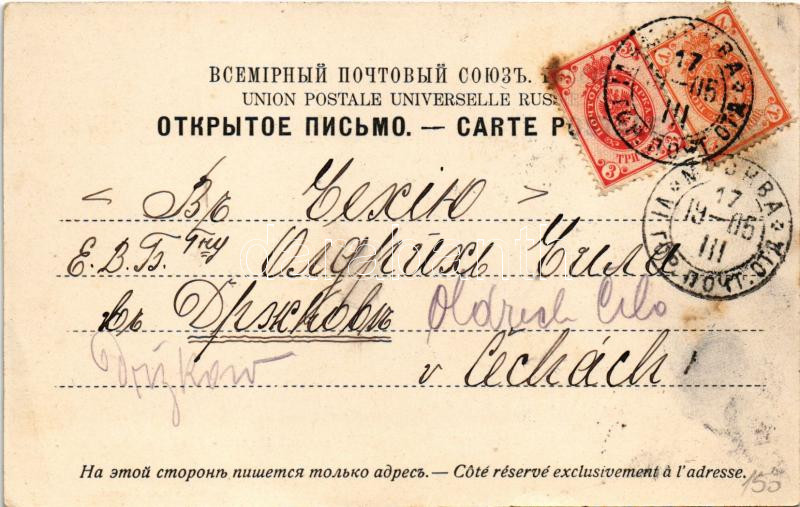 ВСЕМІРНЫЙ ПОЧТОВЫЙ СОЮЗЪ.
UNION POSTALE UNIVERSELLE RUS
ОТКРЫТОЕ ПИСЬМО. — CARTE P
3 3
3 ТРИ
МОСКВА
17
19—05
III
ГОР. ПОЧТ. ОТД.
МОСКВА
17
19—05
III
ГОР. ПОЧТ. ОТД.
< Въ Чехію >
Е. В. Б. Гну Олдрихъ Чила
въ Држковъ Oldrich Cila
Držkow v Čechách
На этой сторонѣ пишется только адресъ. — Côté réservé exclusivement à l'adresse.
155